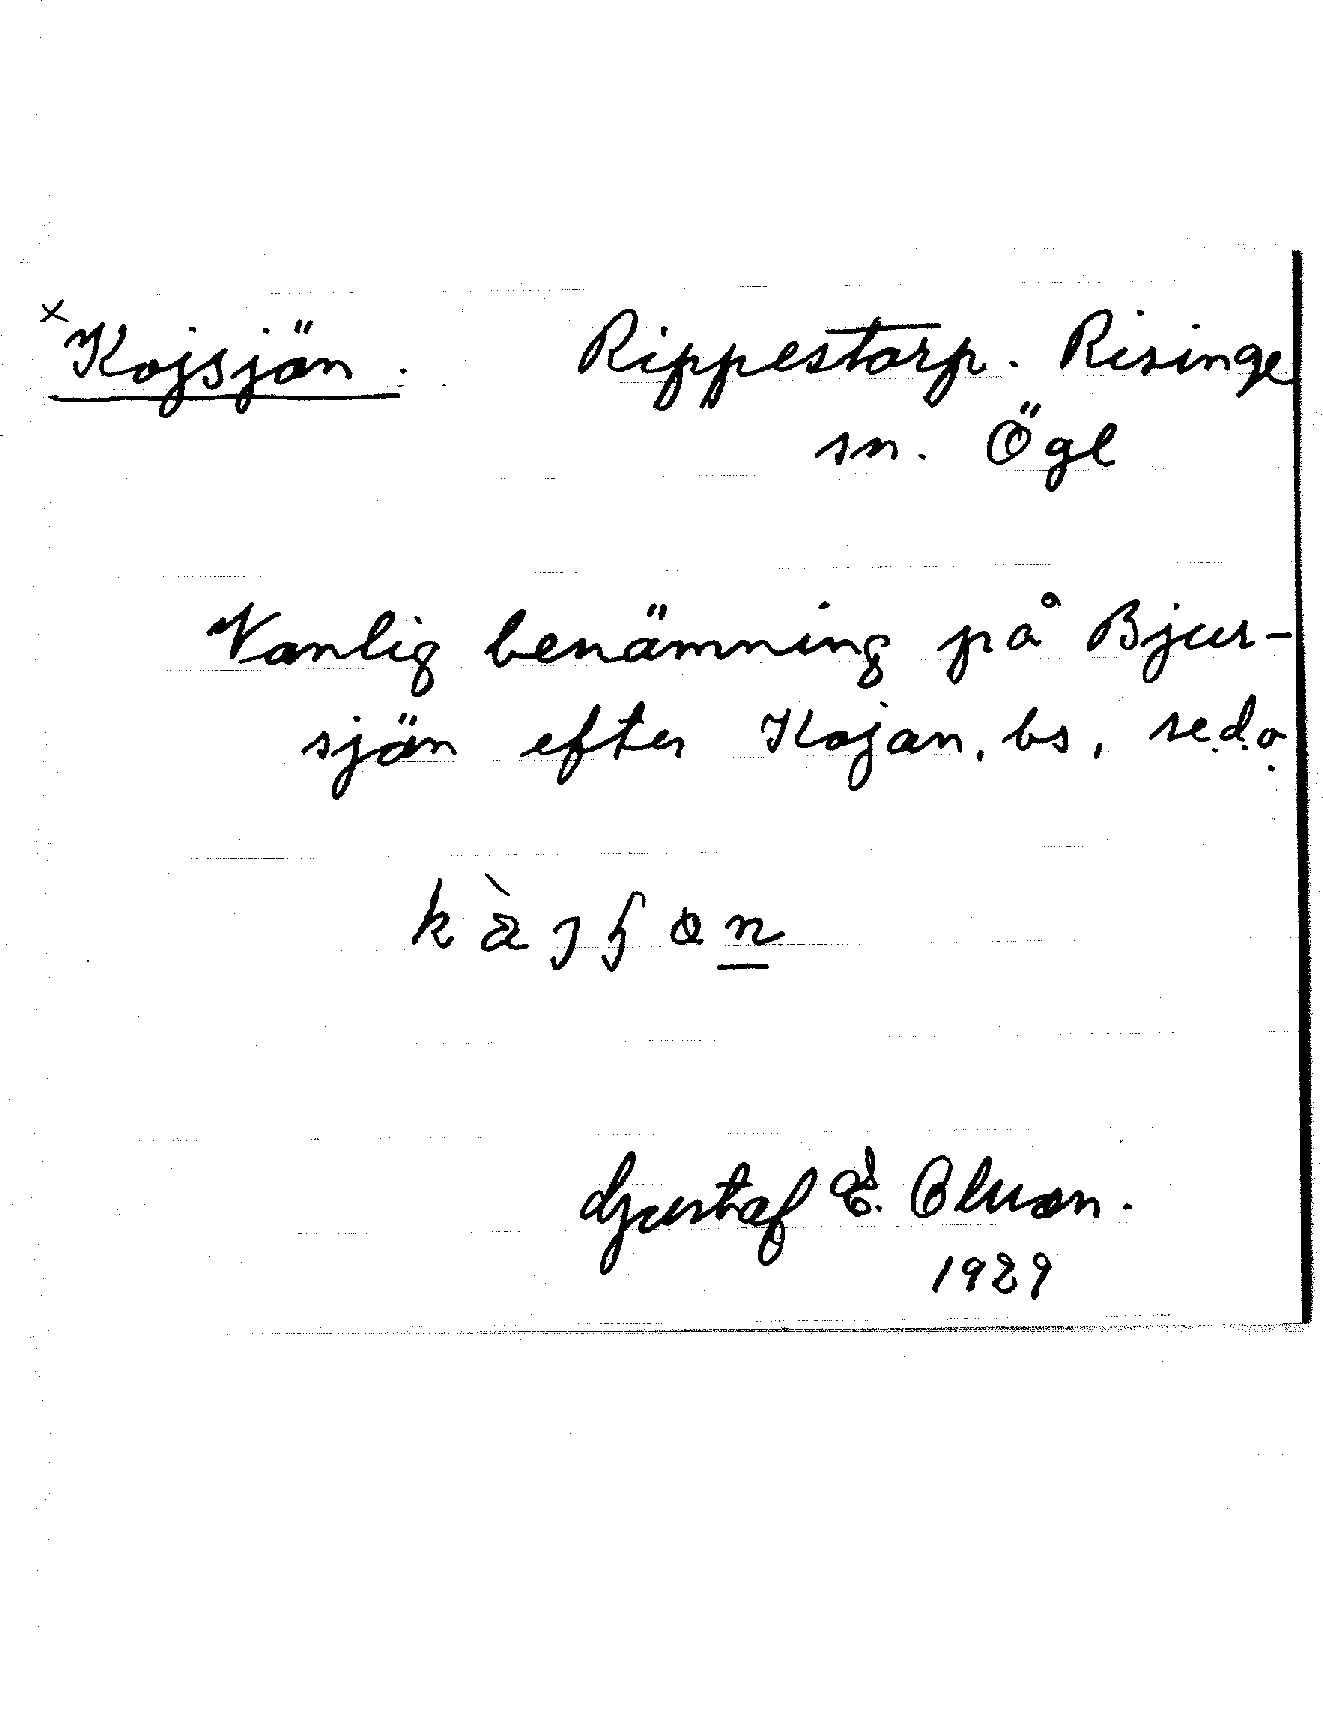 x Kojsjön. Rippestorp. Risinge
sn. Ögl
Vanlig benämning på Bjur-
sjön efter Kojan, bs, se.d.o.
Gustaf E. Olsson.
1929